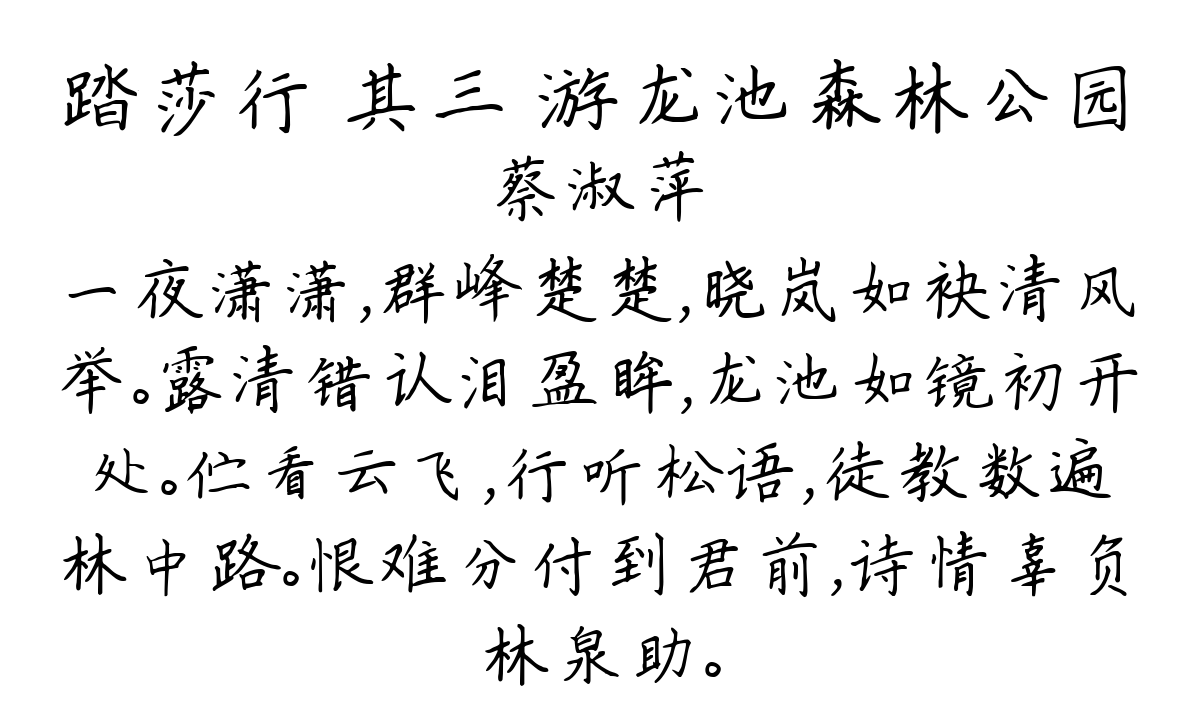 踏莎行 其三 游龙池森林公园
蔡淑萍
一夜潇潇,群峰楚楚,晓岚如袂清风
举。露清错认泪盈眸,龙池如镜初开
处。伫看云飞,行听松语,徒教数遍
林中路。恨难分付到君前,诗情辜负
林泉助。